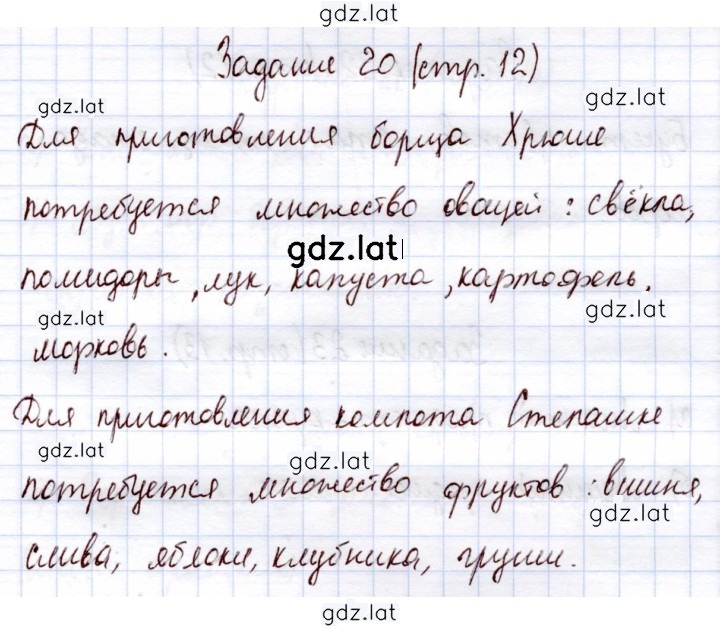 gdz.lat
Задание 20 (стр. 12)
gdz.lat
gdz.lat
Для приготовления борща Хрюше
потребуется множество овощей : свёкла,
gdz.lat
помидоры, лук, капуста, картофель.
gdz.lat
gdz.lat
морковь.
Для приготовления компота Степашке
gdz.lat
gdz.lat
потребуется множество фруктов : вишня,
gdz.lat
слива, яблоки, клубника, груши.
gdz.lat